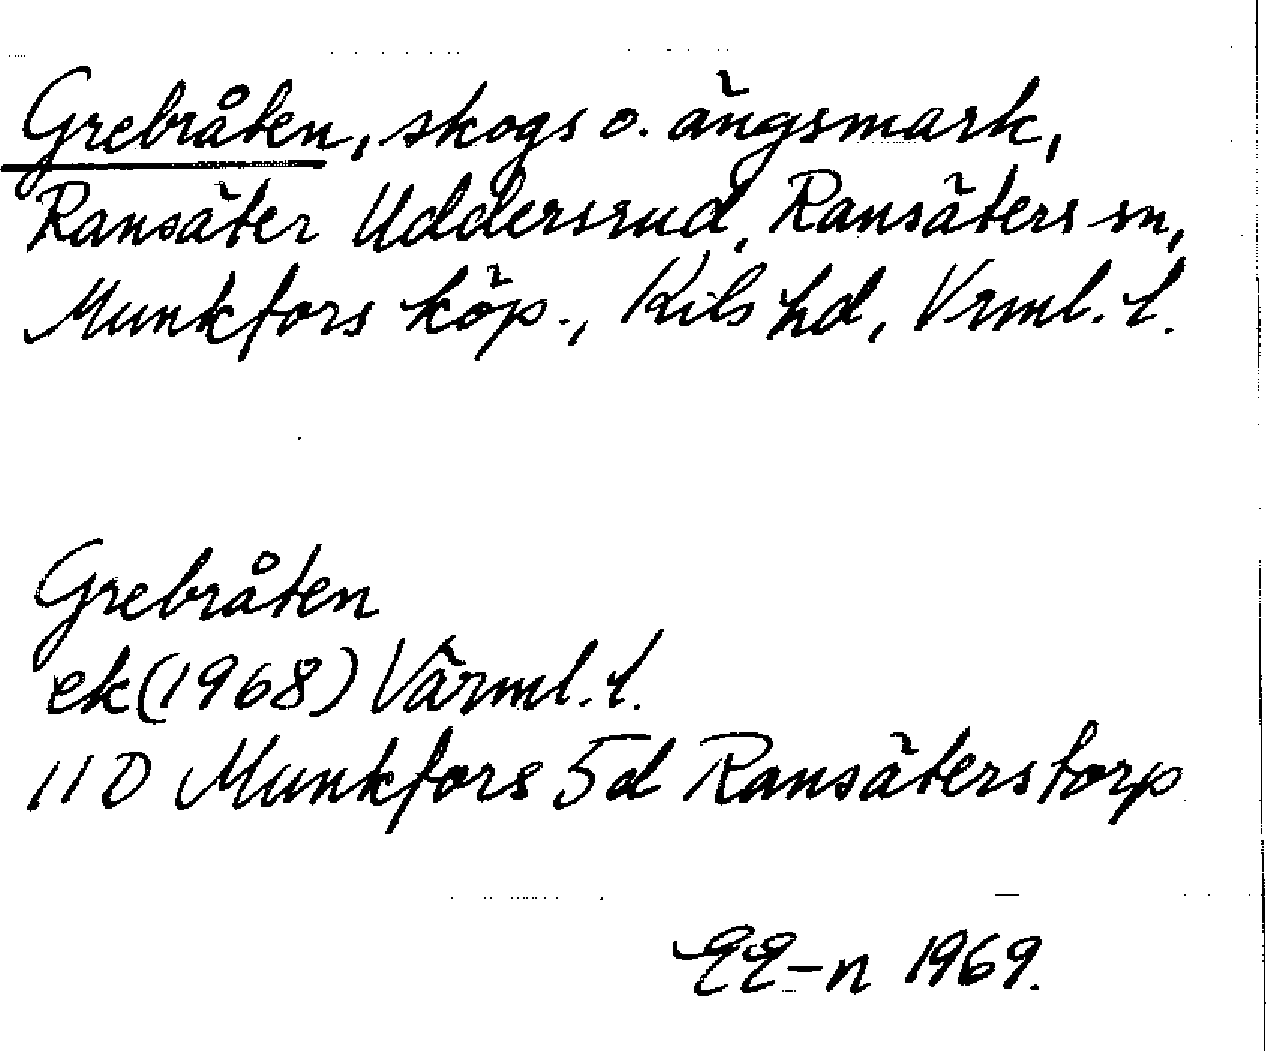 Grebråten, skogs o. ängsmark,
Ransäter Uddersrud, Ransäters sn,
Munkfors köp., Kils hd, Vrml. l.
Grebråten
ek (1968) Värml. l.
11D Munkfors 5d Ransäterstorp
EE-n 1969.